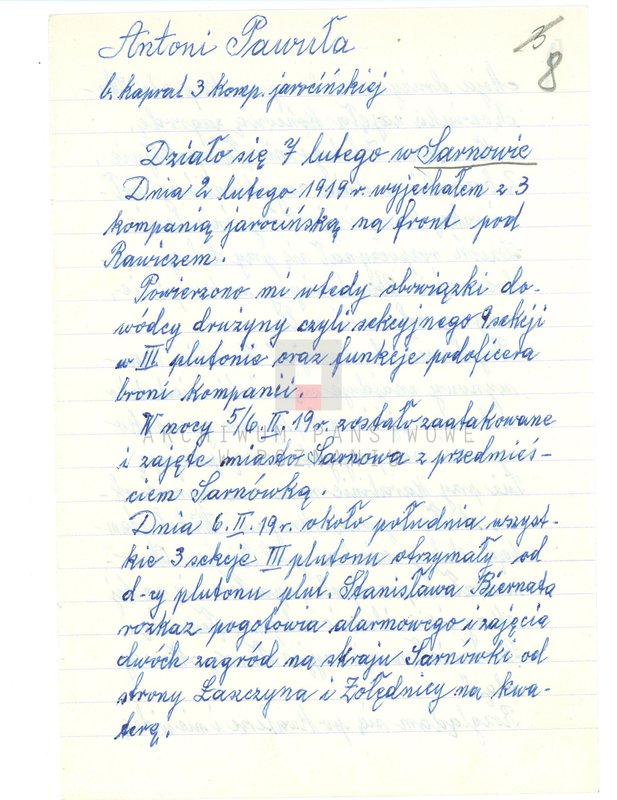 Antoni Pawuła
3
8
b. kapral 3 komp. jarocińskiej
Działo się 7 lutego w Sarnowie
Dnia 2 lutego 1919 r. wyjechałem z 3
kompanią jarocińską na front pod
Rawiczem.
Powierzono mi wtedy obowiązki do-
wódcy drużyny czyli sekcyjnego 9 sekcji
w III plutonie oraz funkcje podoficera
broni kompanii.
W nocy 5/6. II. 19 r. zostało zaatakowane
ARCHIWUM PAŃSTWOWE
i zajęte miasto Sarnowa z przedmieś-
ciem Sarnówką.
Dnia 6. II. 19 r. około południa wszyst-
kie 3 sekcje III plutonu otrzymały od
d-cy plutonu plut. Stanisława Biernata
rozkaz pogotowia alarmowego i zajęcia
dwóch zagród na skraju Sarnówki od
strony Łaszczyna i Żołędnicy na kwa-
terę.